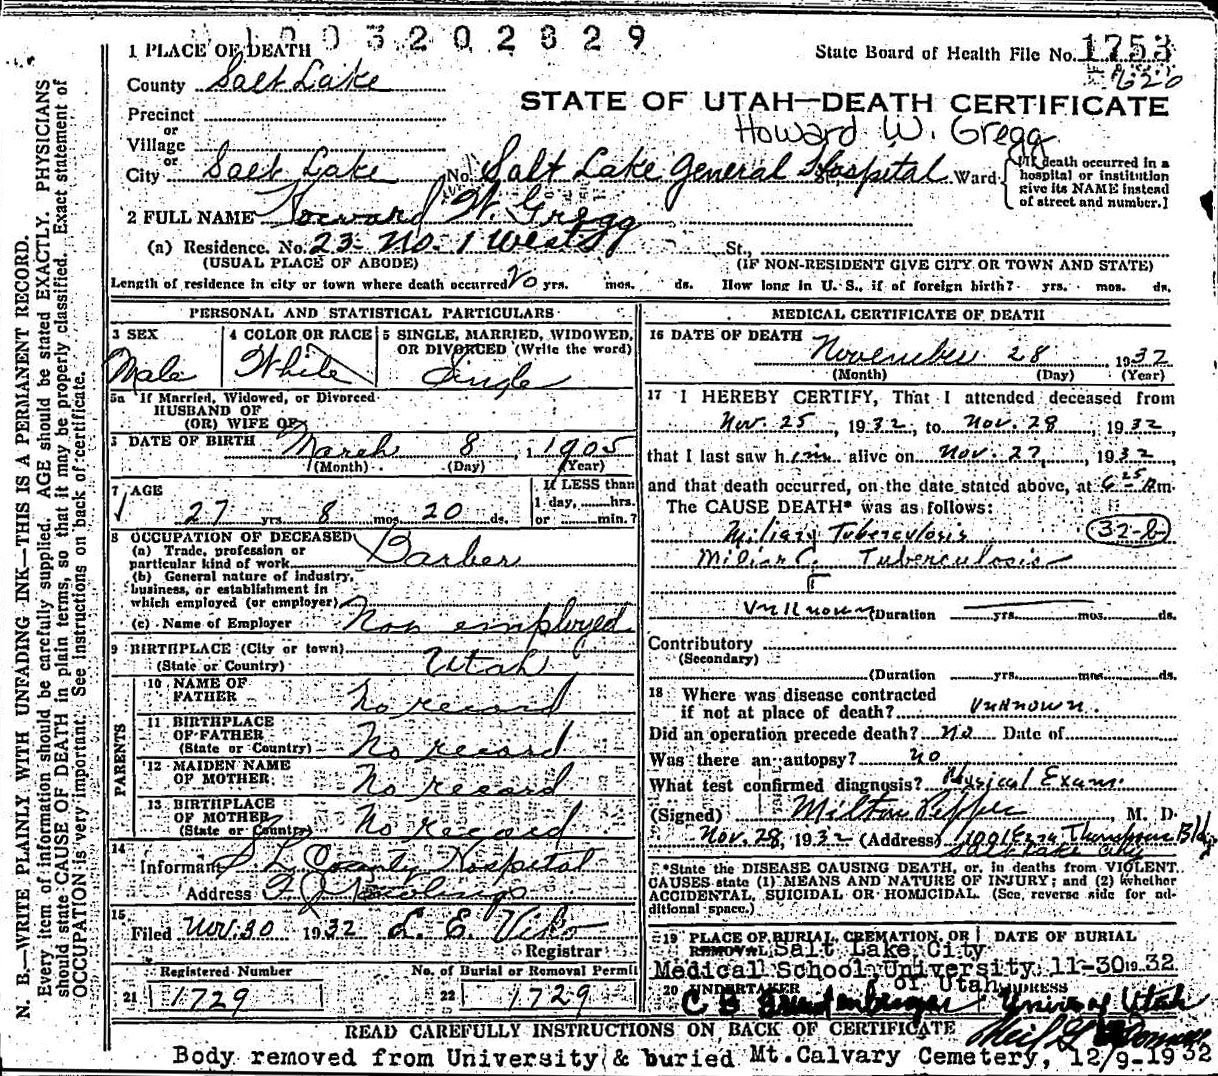 1003202829
1 PLACE OF DEATH
State Board of Health File No. 1753
County Salt Lake
620
STATE OF UTAH—DEATH CERTIFICATE
Precinct
or
Howard W. Gregg
Village
or
City Salt Lake No. Salt Lake General Hospital Ward
[If death occurred in a
hospital or institution
give its NAME instead
of street and number.]
2 FULL NAME Howard W. Gregg
(a) Residence. No. 23 No. 1 West St.,
(USUAL PLACE OF ABODE) (IF NON-RESIDENT GIVE CITY OR TOWN AND STATE)
Length of residence in city or town where death occurred 20 yrs. mos. ds. How long in U. S., if of foreign birth? yrs. mos. ds.
PERSONAL AND STATISTICAL PARTICULARS
3 SEX
Male
4 COLOR OR RACE
White
5 SINGLE, MARRIED, WIDOWED,
OR DIVORCED (Write the word)
Single
5a If Married, Widowed, or Divorced
HUSBAND OF
(OR) WIFE OF
DATE OF BIRTH March 8, 1905
(Month) (Day) (Year)
7 AGE
27 yrs. 8 mos. 20 ds.
If LESS than
1 day, hrs.
or min.?
8 OCCUPATION OF DECEASED
(a) Trade, profession or
particular kind of work Barber
(b) General nature of industry,
business, or establishment in
which employed (or employer)
(c) Name of Employer Non employed
9 BIRTHPLACE (City or town)
(State or Country) Utah
PARENTS
10 NAME OF
FATHER No record
11 BIRTHPLACE
OF FATHER
(State or Country) No record
12 MAIDEN NAME
OF MOTHER No record
13 BIRTHPLACE
OF MOTHER
(State or Country) No record
14
Informant S L County Hospital
Address
15
Filed Nov. 30 1932 L. E. Viko
Registrar
Registered Number
21 1729
No. of Burial or Removal Permit
22 1729
MEDICAL CERTIFICATE OF DEATH
16 DATE OF DEATH
November 28 1932
(Month) (Day) (Year)
17 I HEREBY CERTIFY, That I attended deceased from
Nov. 25, 1932, to Nov. 28, 1932,
that I last saw him alive on Nov. 27, 1932,
and that death occurred, on the date stated above, at 6 25 Am.
The CAUSE DEATH* was as follows:
Miliary Tuberculosis 32-b
Miliary Tuberculosis
Unknown (Duration yrs. mos. ds.
Contributory
(Secondary)
(Duration yrs. mos. ds.
18 Where was disease contracted
if not at place of death? Unknown.
Did an operation precede death? no Date of
Was there an autopsy? no
What test confirmed diagnosis? Physical Exam.
(Signed) Milton Pepper, M. D.
Nov. 28, 1932 (Address) 1001 Ezra Thompson Bldg
Salt Lake City
*State the DISEASE CAUSING DEATH, or, in deaths from VIOLENT
CAUSES state (1) MEANS AND NATURE OF INJURY; and (2) whether
ACCIDENTAL, SUICIDAL OR HOMICIDAL. (See reverse side for ad-
ditional space.)
19 PLACE OF BURIAL, CREMATION, OR
REMOVAL Salt Lake City
Medical School University
of Utah
DATE OF BURIAL
11-30 1932
20 UNDERTAKER ADDRESS
C B Univ of Utah
READ CAREFULLY INSTRUCTIONS ON BACK OF CERTIFICATE
Body removed from University & buried Mt. Calvary Cemetery, 12/9-1932
N. B.—WRITE PLAINLY WITH UNFADING INK—THIS IS A PERMANENT RECORD.
Every item of information should be carefully supplied. AGE should be stated EXACTLY. PHYSICIANS
should state CAUSE OF DEATH in plain terms, so that it may be properly classified. Exact statement of
OCCUPATION is very important. See instructions on back of certificate.